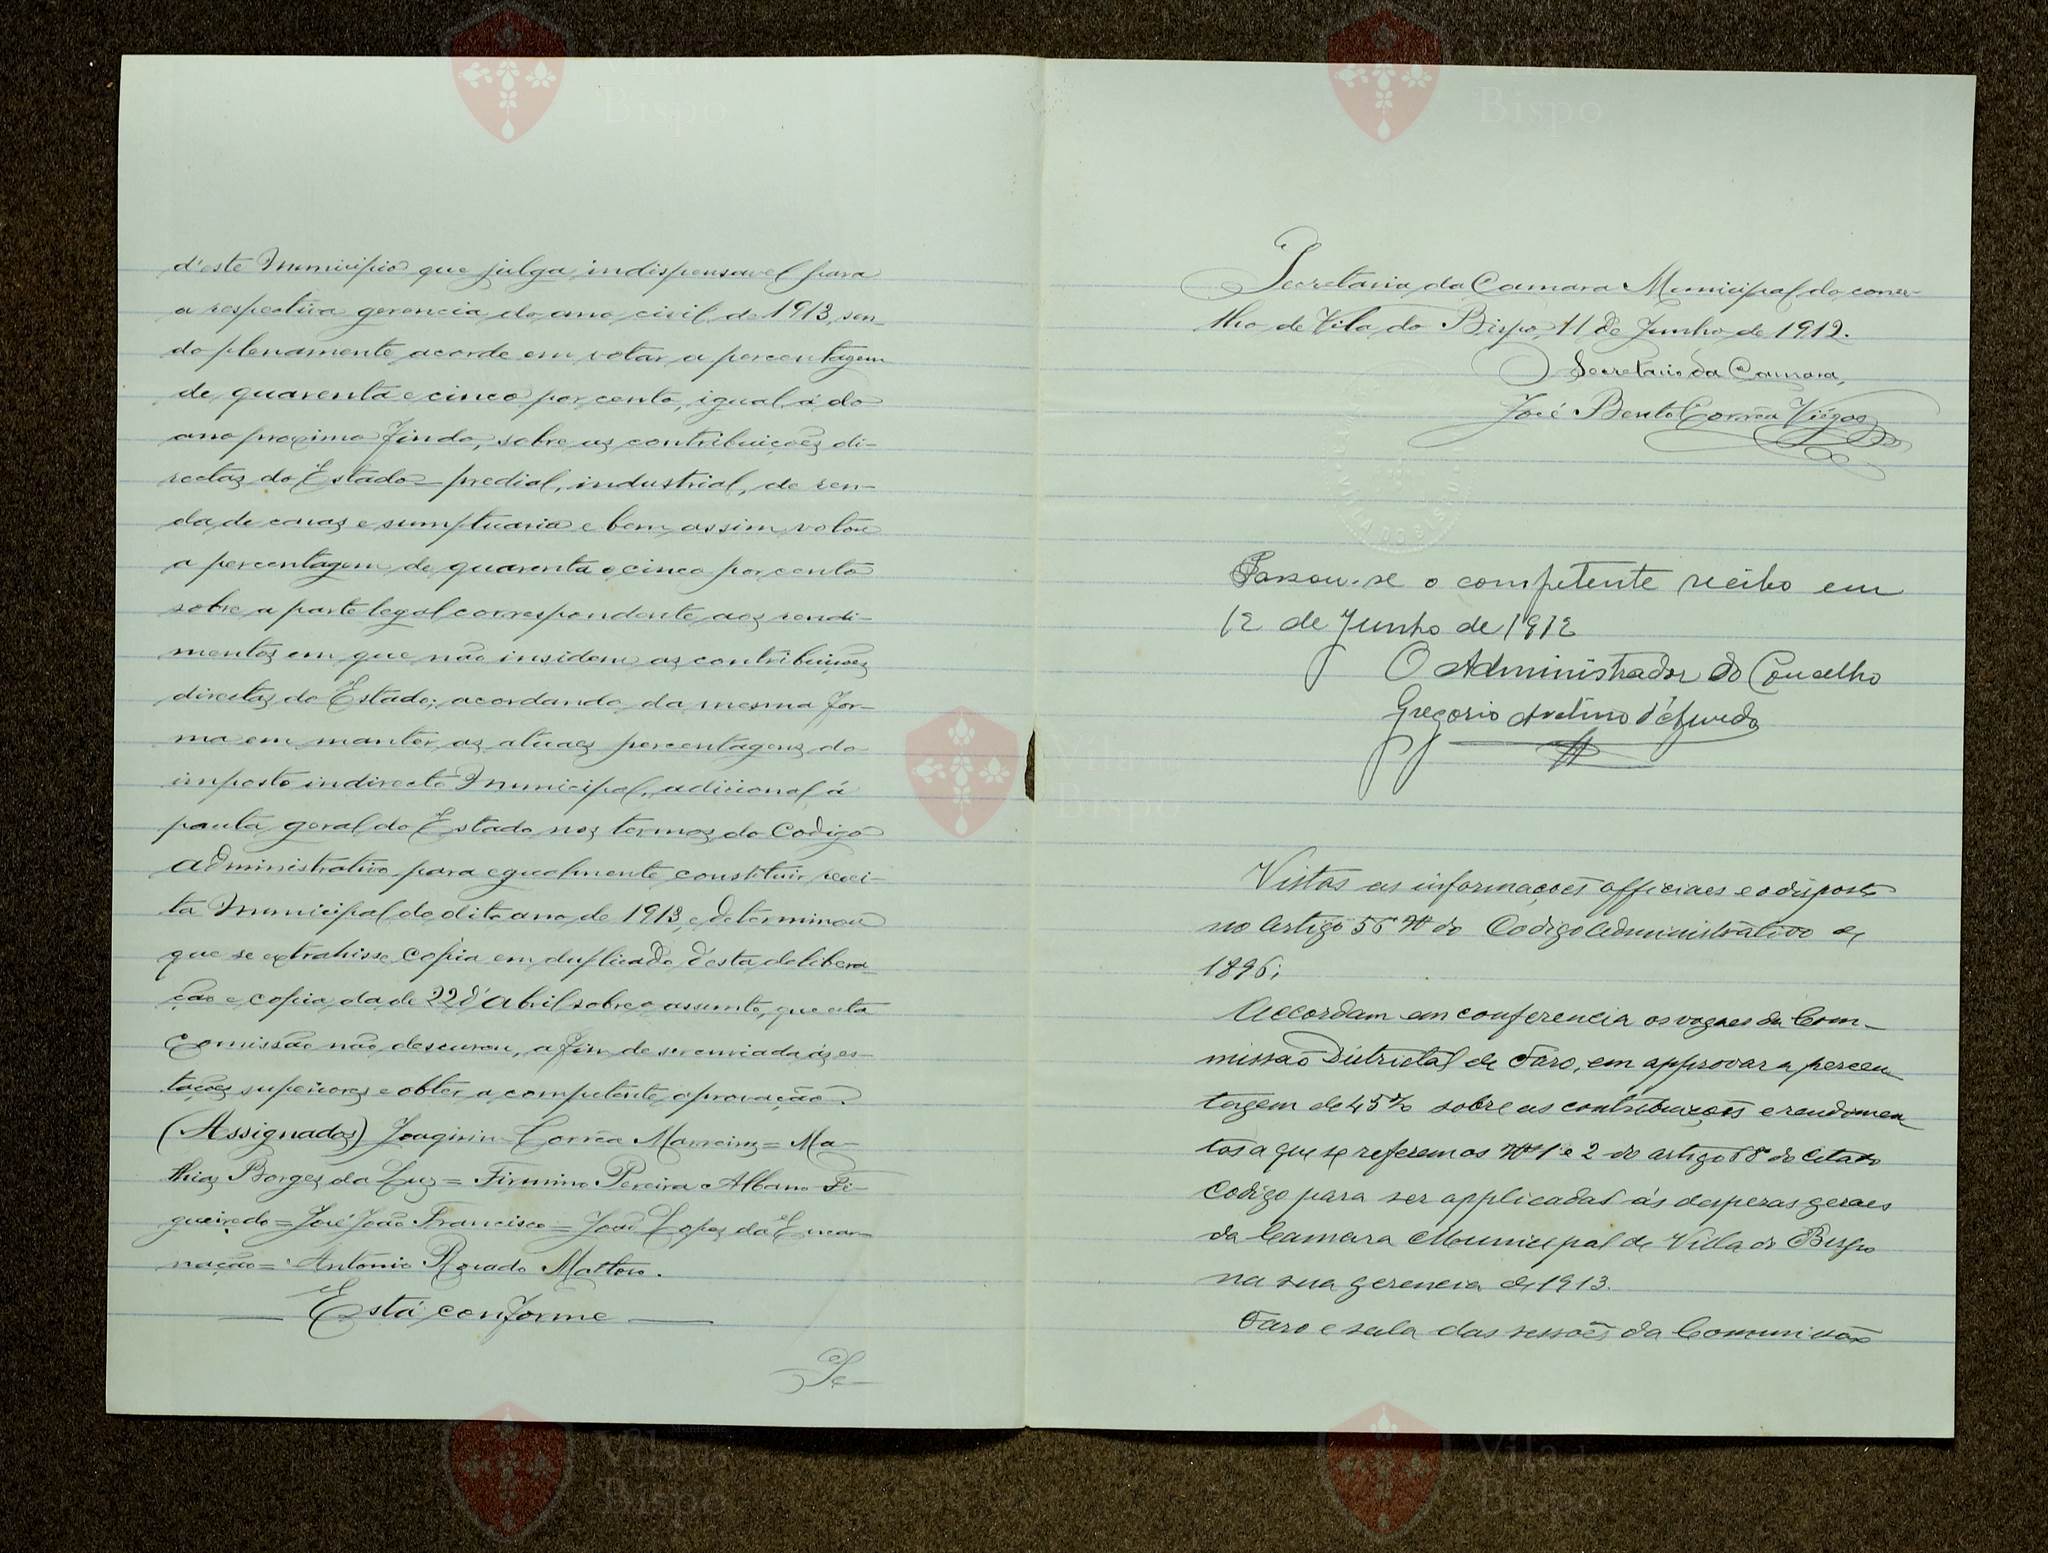 d'este Municipio que julga indispensavel para
a respectiva gerencia do ano civil de 1913, sen-
do plenamente acorde em votar a percentagem
de quarenta e cinco por cento, igual á do
ano proximo findo, sobre as contribuições di-
rectas do Estado - predial, industrial, de ren-
da de casas e sumptuaria e bem assim votou
a percentagem de quarenta e cinco por cento
sobre a parte legal correspondente aos rendi-
mentos em que não insidem as contribuições
directas do Estado; acordando da mesma for-
ma em manter as atuaes percentagens do
imposto indirecto Municipal, adicional á
pauta geral do Estado nos termos do Codigo
Administrativo para egualmente constituir recei-
ta Municipal do dito ano de 1913, e determinou
que se extrahisse copia em duplicado d'esta delibera-
ção e copia da de 22 d'Abril sobre o assunto, que esta
Comissão não descurou, a fim de ser enviada ás es-
tações superiores e obter a competente aprovação.
(Assignados) Joaquim Corrêa Marreiros = Ma-
thias Borges da Luz = Firmino Pereira Albano Fi-
gueiredo = José João Francisco = João Lopes da Encar-
nação = Antonio Rozado Matteos.
Está conforme
Se-
Secretaria da Camara Municipal do conce-
lho de Vila do Bispo, 11 de Junho de 1912.
O Secretario da Camara,
José Bento Corrêa Viégas
VILA DO BISPO
Passou-se o competente recibo em
12 de Junho de 1912
O Administrador do Concelho
Gregorio Avelino d'Azevedo
Vistas as informações officiaes e o disposto
no artigo 56 nº do Codigo Administrativo de
1896;
Accordam em conferencia os vogaes da Com-
missão Districtal de Faro, em approvar a percen
tagem de 45% sobre as contribuições e rendimen
tos a que se referem os nos 1º e 2 do artigo 68º do citado
Codigo para ser applicadas ás despezas geraes
da Camara Municipal de Villa do Bispo
na sua gerencia de 1913.
Faro e sala das sessões da Commissão
Vila do
Bispo